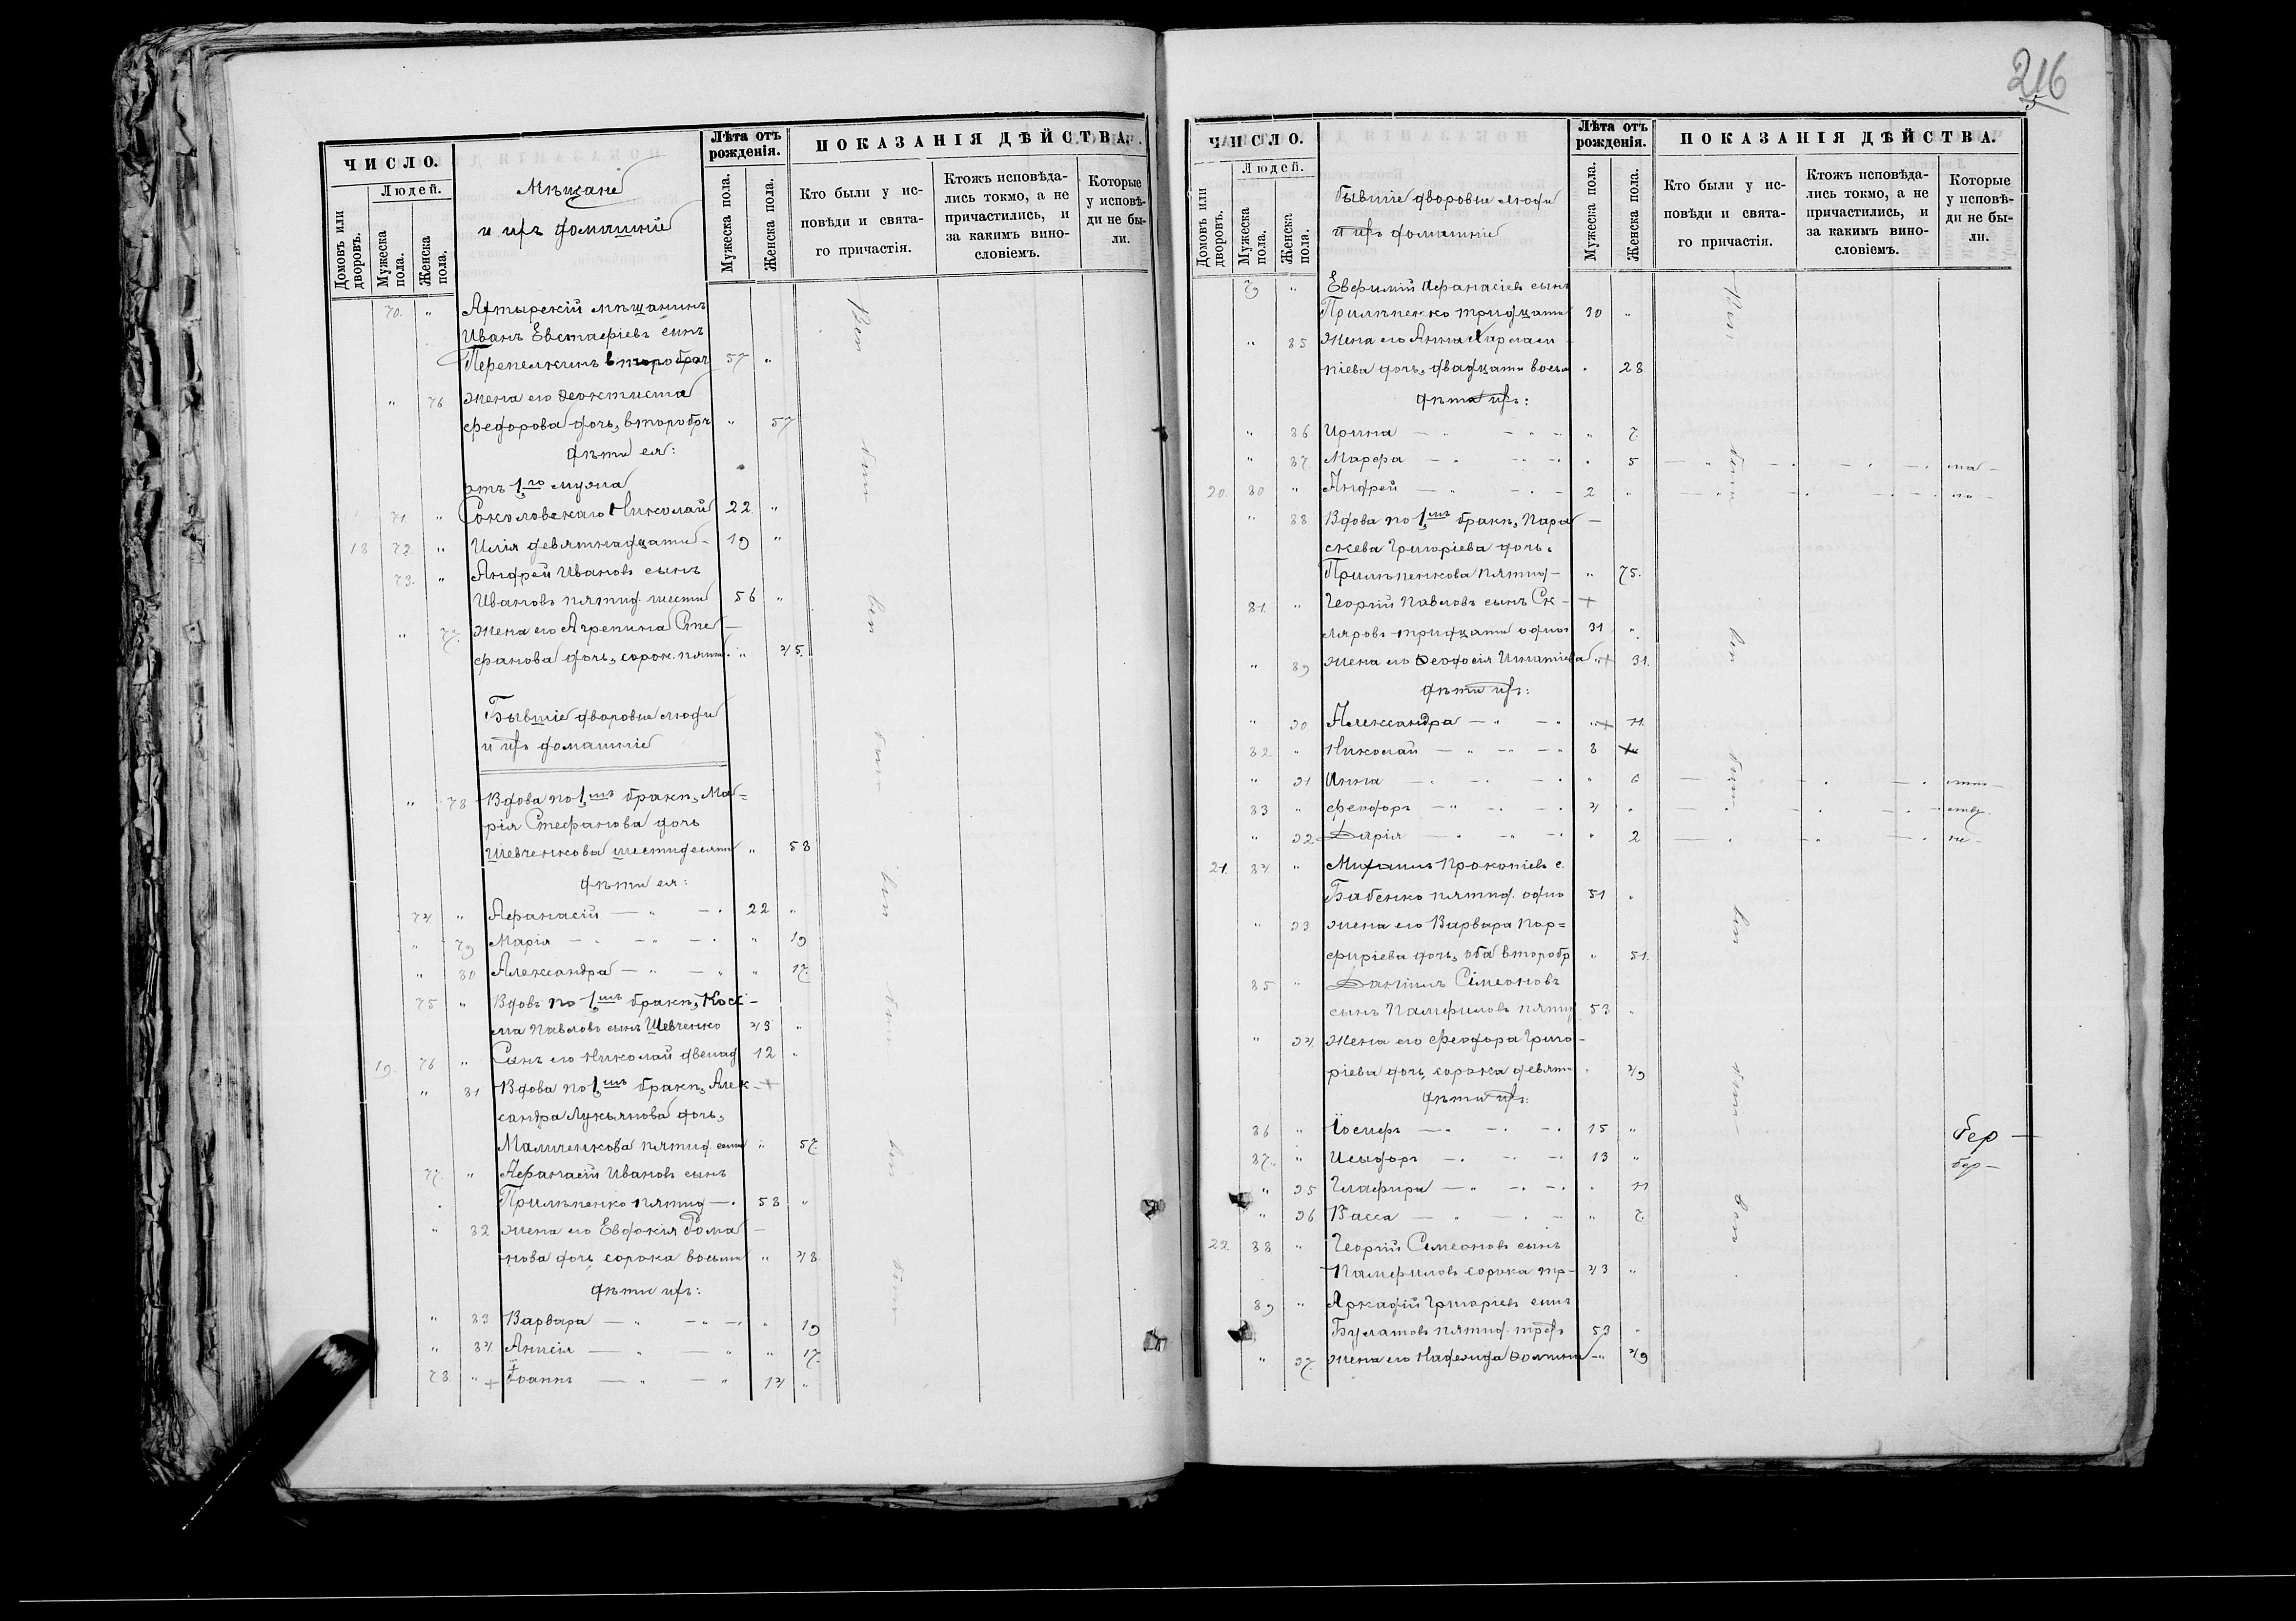 216
5
ЧИСЛО.
Людей.
Домовъ или дворовъ.
Мужеска пола.
Женска пола.
Мѣщане
и ихъ домашніе
Лѣта отъ рожденія.
Мужеска пола.
Женска пола.
ПОКАЗАНІЯ ДѢЙСТВА.
Кто были у ис-
повѣди и свята-
го причастія.
Ктожъ исповѣда-
лись токмо, а не
причастились, и
за какимъ вино-
словіемъ.
Которые
у исповѣ-
ди не бы-
ли.
70. " Ахтырскій мѣщанинъ
Иванъ Евстафіевъ сынъ
Перепелкинъ второбрач 57 "
" 76 жена его Ѳеоктиста
Федорова дочь, второбрч " 57
дѣти ея:
отъ 1го мужа
71. " Соколовскаго Николай 22 "
18 72 " Илія девятнадцати 19 "
73. " Андрей Ивановъ сынъ
Ивановъ пятид. шести 56 "
" 77. жена его Агрепина Сте-
фанова дочь, сорок. пяти " 45.
Бывшіе дворовые люди
и ихъ домашніе
" 78 Вдова по 1мъ бракѣ, Ма=
рія Стефанова дочь
Шевченкова шестидесяти " 58
дѣти ея:
74. " Афанасій — " — . 22 "
" 79 Марія — . — " — . " 19
" 80 Александра — " — " " 17.
75 " Вдовъ по 1мъ бракѣ, Косі-
ма Павловъ сынъ Шевченко 43 "
19. 76 " Сынъ его Николай двенад 12 "
" 81 Вдова по 1мъ бракѣ, Алек- +
сандра Лукьянова дочь,
Маличенкова пятид. семи " 57.
77. " Афанасій Ивановъ сынъ
Прилѣпенко пятид — . 58 "
" 82 жена его Евдокія Рома-
нова дочь сорока восьми " 48.
дѣти ихъ:
" 83 Варвара — " — " — . " 19
" 84 Анисія — " — " " 17.
78 " + Іоаннъ — " — " 14 "
Вси были
ЧИСЛО.
Людей.
Домовъ или дворовъ.
Мужеска пола.
Женска пола.
Бывшіе дворовые люди
и ихъ домашніе
Лѣта отъ рожденія.
Мужеска пола.
Женска пола.
ПОКАЗАНІЯ ДѢЙСТВА.
Кто были у ис-
повѣди и свята-
го причастія.
Ктожъ исповѣда-
лись токмо, а не
причастились, и
за какимъ вино-
словіемъ.
Которые
у исповѣ-
ди не бы-
ли.
79 " Евфимій Афанасіевъ сынъ
Прилѣпенко тридцати 30 "
" 85 жена его Анна Харлам-
піева дочь, двадцати восьм . 28
дѣти ихъ:
" 86 Ирина — " — " — " 7.
" 87. Марфа — . — . " 5
20. 80 " Андрей — . — 2 "
" 88 Вдова по 1мъ бракѣ, Пара-
скева Григоріева дочь,
Прилѣпенкова пятид — " 75.
81. " Георгій Павловъ сынъ Ск- +
ляровъ тридцати одног 31 "
" 89 жена его Ѳеодосія Игнатіева "+ 31.
дѣти ихъ:
" 90 Александра — " — . "+ 11.
82 " Николай — " — " — " 8 +
" 91 Инна — . — . — . " 6
83 " Феодоръ — " — . — . 4 "
" 92. Дарія — . — " — . " 2
21. 84 " Михаилъ Прокопіевъ с.
Бабенко пятид. одно 51 "
" 93 жена его Варвара Пор=
фиріева дочь, оба второбр " 51.
85 " Даніилъ Сімеоновъ
сынъ Памфиловъ пятид 53 "
" 94. жена его Феодора Григо-
ріева дочь, сорока девят- " 49
дѣти ихъ:
86 " Іосифъ — . — . — . 15 " бер —
87. " Исидоръ — . — . — . 13 " бер —
" 95 Глафира — " — . — . " 11
" 96 Васса — . — . — " 7.
22 88 " Георгій Симеоновъ сынъ
Памфиловъ сорока тр- 43 "
89 " Аркадій Григоріевъ сынъ
Булатовъ пятид. трехъ 53 "
" 97. жена его Надежда Ѳомина — " 49
Вси были